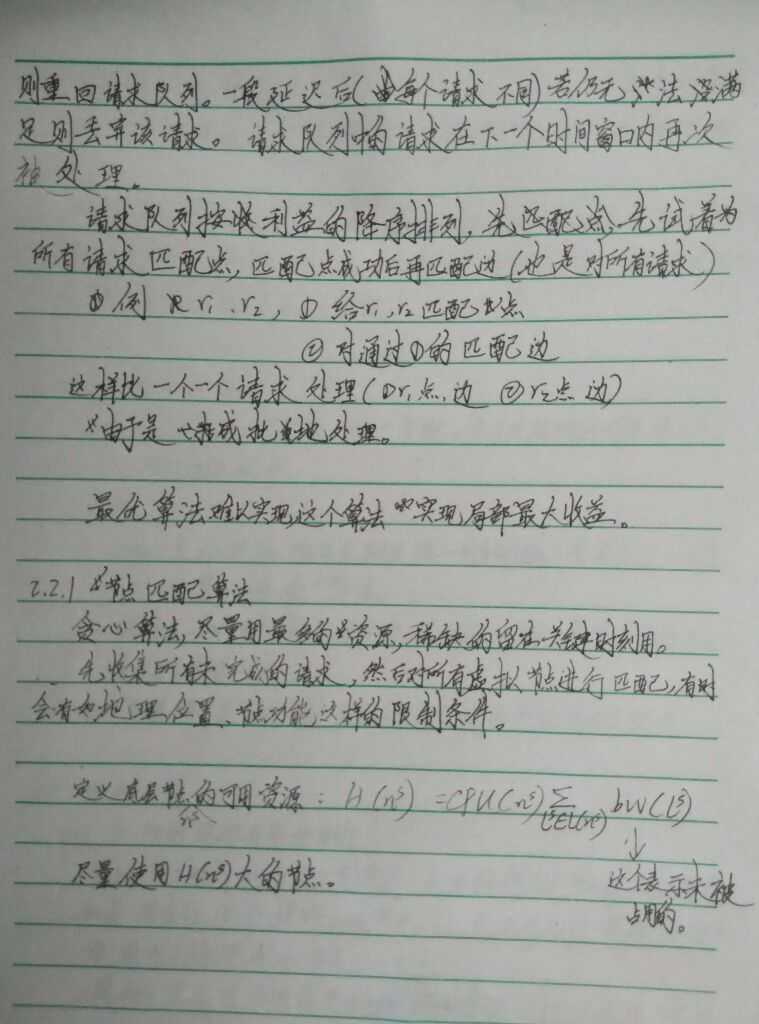 则重回请求队列。一段延迟后(由每个请求不同)若仍无法满
足则丢弃该请求。请求队列中的请求在下一个时间窗口内再次
被处理。
请求队列按收利益的降序排列,先匹配点,先试着为
所有请求匹配点,匹配点成功后再匹配边(也是对所有请求)
例 r₁、r₂, ① 给r₁、r₂匹配点
② 对通过①的匹配边
这样比一个一个请求处理(①r₁点、边 ②r₂点边)
由于是 批地处理。
最优算法难以实现,这个算法实现局部最大收益。
2.2.1 节点匹配算法
贪心算法,尽量用最多的资源,稀缺的留在关键时刻用。
先收集所有未完成的请求,然后对所有虚拟节点进行匹配,有时
会有如地理位置、节点功能这样的限制条件。
定义底层节点的可用资源:H(nˢ) =CPU(nˢ)∑ bw(lˢ)
nˢ lˢ∈L(nˢ) ↓
尽量使用H(nˢ)大的节点。 这个表示未被
占用的。